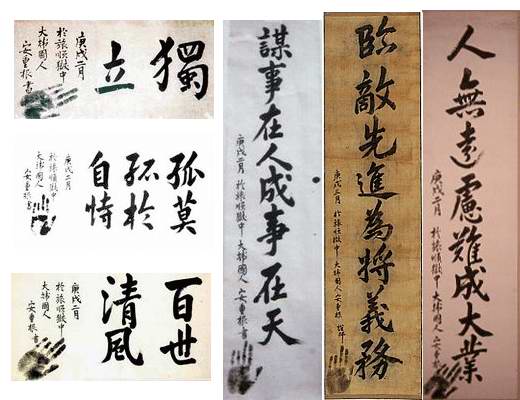 獨立
庚戌二月
於旅順獄中
大韓國人
安重根書
孤莫
孤於
自恃
庚戌二月
於旅順獄中
大韓國人
安重根書
百世
清風
庚戌二月
於旅順獄中
大韓國人
安重根書
謀事在人成事在天
庚戌二月 於旅順獄中 大韓國人 安重根書
臨敵先進為將義務
庚戌三月 於旅順獄中 大韓國人 安重根 謹拜
人無遠慮難成大業
庚戌二月 於旅順獄中 大韓國人 安重根書